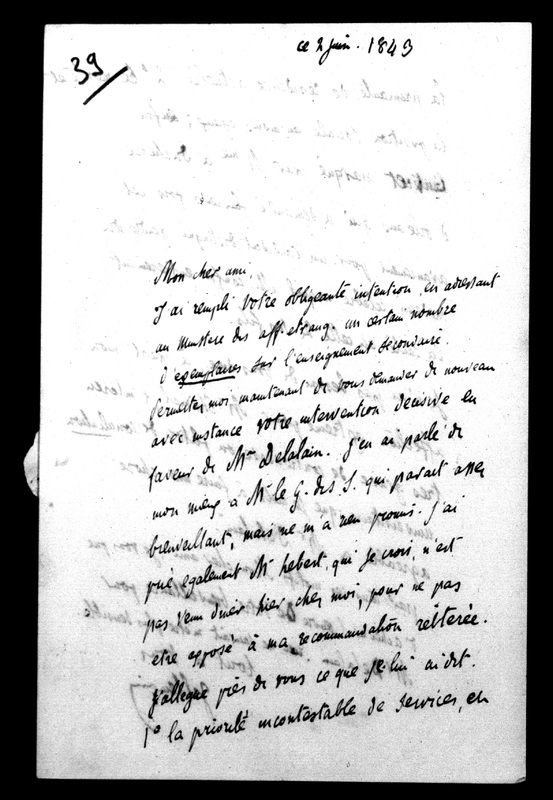 ce 2 juin. 1843
39
Mon cher ami.
J'ai rempli votre obligeante intention en adressant
au ministere des aff. etrang. un certain nombre
d'exemplaires sur l'enseignement secondaire.
Permettez moi maintenant de vous demander de nouveau
avec instance votre intervention décisive en
faveur de Mr Delalain. J'en ai parlé de
mon mieux à Mr le G. des S. qui parait assez
bienveillant, mais ne m'a rien promis. J'ai
prié également Mr hebert, qui je crois, n'est
pas venu diner hier chez moi, pour ne pas
etre exposé à ma recommandation réitérée.
J'allegue près de vous ce que je lui ai dit.
1° la priorité incontestable de services, en